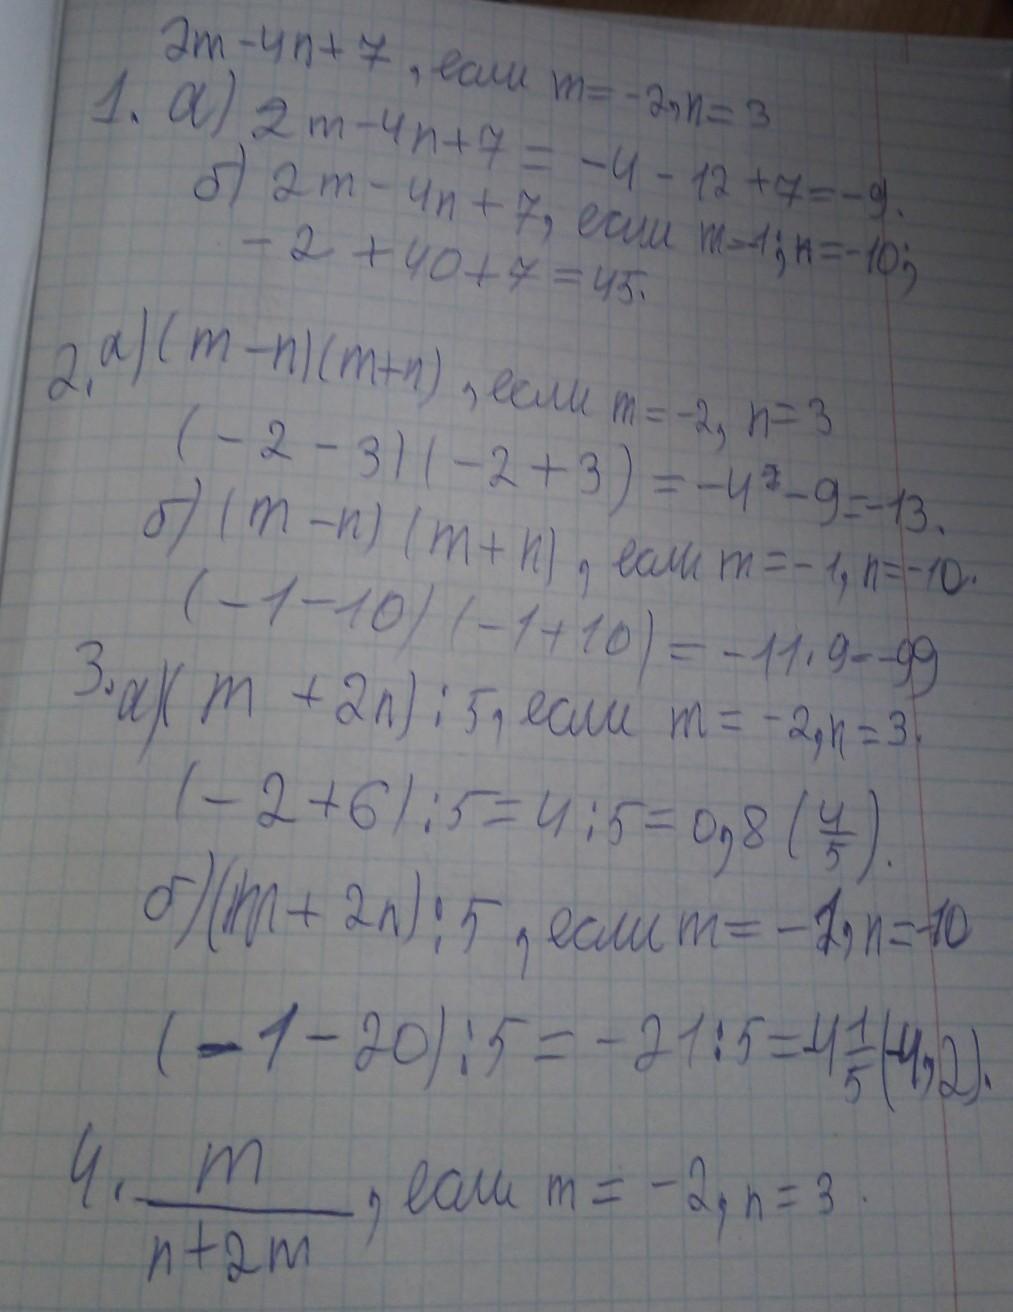 2m-4n+7, если m=-2, n=3
1. а) 2m-4n+7= -4-12+7=-9.
б) 2m-4n+7, если m=-1; n=-10;
-2+40+7=45.
2. а) (m-n)(m+n), если m=-2, n=3
(-2-3)(-2+3)=-4²-9=-13.
б) (m-n)(m+n), если m=-1, n=-10.
(-1-10)(-1+10)=-11·9=-99
3. а)(m+2n):5, если m=-2, n=3.
(-2+6):5=4:5=0,8(4/5).
б)(m+2n):5, если m=-1, n=-10
(-1-20):5=-21:5=-4 1/5(-4,2).
4. m/(n+2m), если m=-2, n=3.